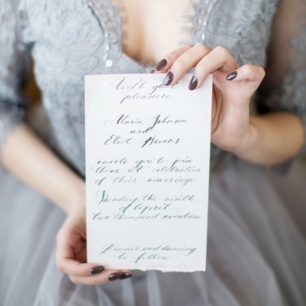 With your
pleasure
Maria Johnson
and
Eliot Stevens
invite you to join
them at celebration
of their marriage
Sunday the ninth
of April
two thousand seventeen
Dinner and dancing
to follow